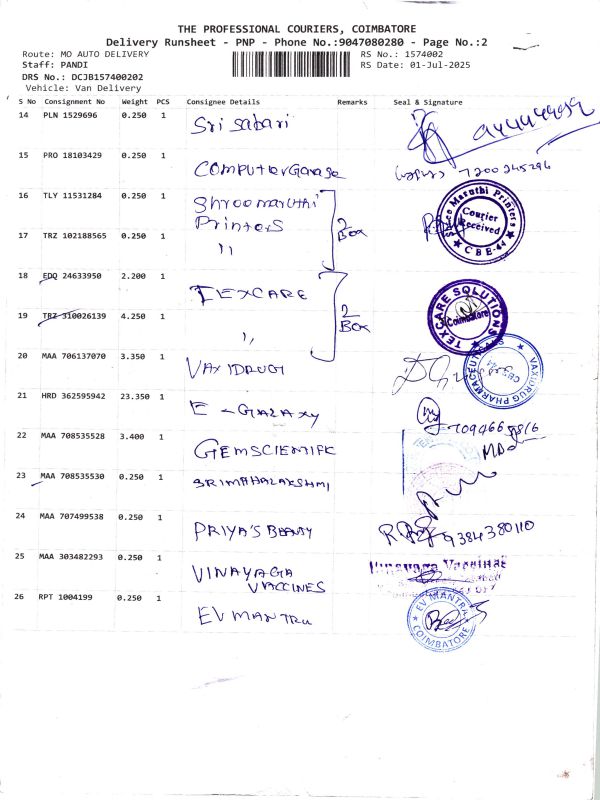 THE PROFESSIONAL COURIERS, COIMBATORE
Delivery Runsheet - PNP - Phone No.:9047080280 - Page No.:2
Route: MO AUTO DELIVERY RS No.: 1574002
Staff: PANDI RS Date: 01-Jul-2025
DRS No.: DCJB157400202
Vehicle: Van Delivery
S No Consignment No Weight PCS Consignee Details Remarks Seal & Signature
14 PLN 1529696 0.250 1 Sri Sabari
15 PRO 18103429 0.250 1 Computer Garage 7200245296
16 TLY 11531284 0.250 1 Shreemaruthi Printers
17 TRZ 102188565 0.250 1 ,, 2 Box
Shree Maruthi Printers Courier Received CBE-44
18 EDQ 24633950 2.200 1 TEXCARE
19 TRZ 310026139 4.250 1 ,, 2 Box
TEXCARE SOLUTIONS Coimbatore
20 MAA 706137070 3.350 1 VAXIDRUG
VAXIDRUG PHARMACEUTICALS
21 HRD 362595942 23.350 1 E-GALAXY
22 MAA 708535528 3.400 1 GEMSCIEMIFK
23 MAA 708535530 0.250 1 SRIMAHALAKSHMI
24 MAA 707499538 0.250 1 PRIYA'S BEAUTY 9384380110
25 MAA 303482293 0.250 1 VINAYAGA VACCINES
Vinayaga Vaccines
26 RPT 1004199 0.250 1 EV MANTRA
EV MANTRA COIMBATORE